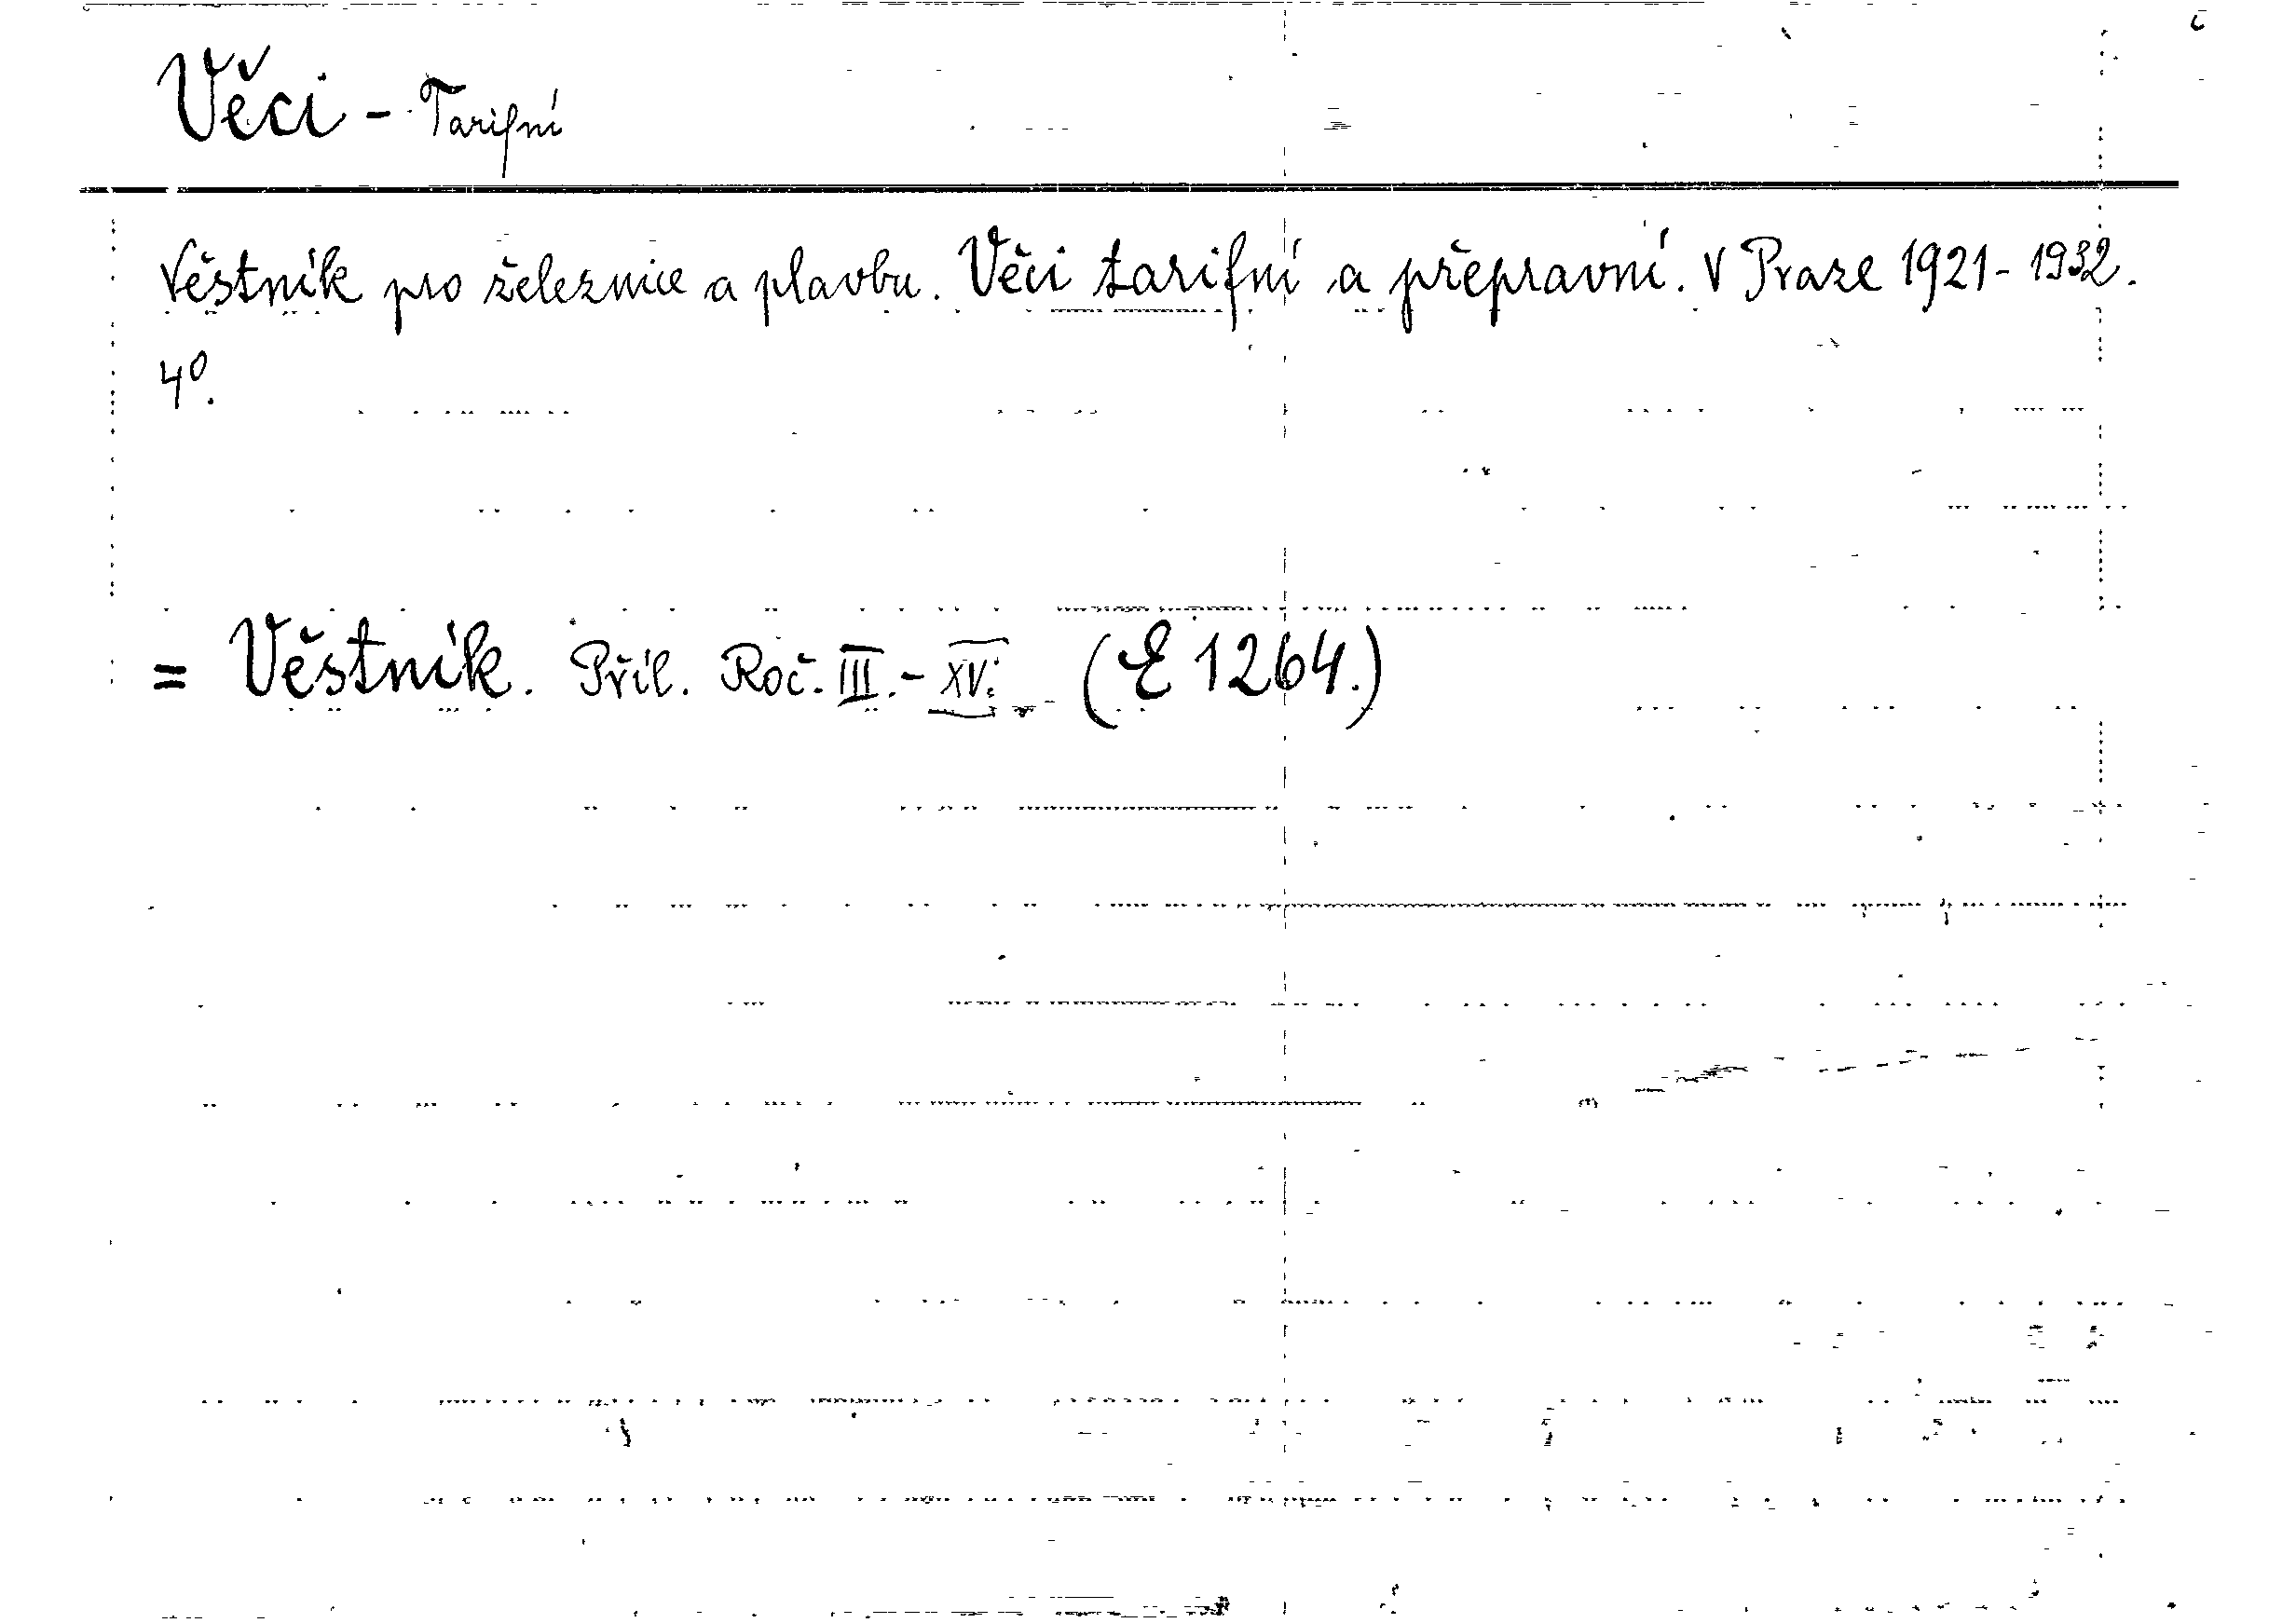 Věci - Tarifní
Věstník pro železnice a plavbu. Věci tarifní a přepravní. V Praze 1921-1932.
4°.
= Věstník. Příl. Roč. III.-XV. (E 1264.)